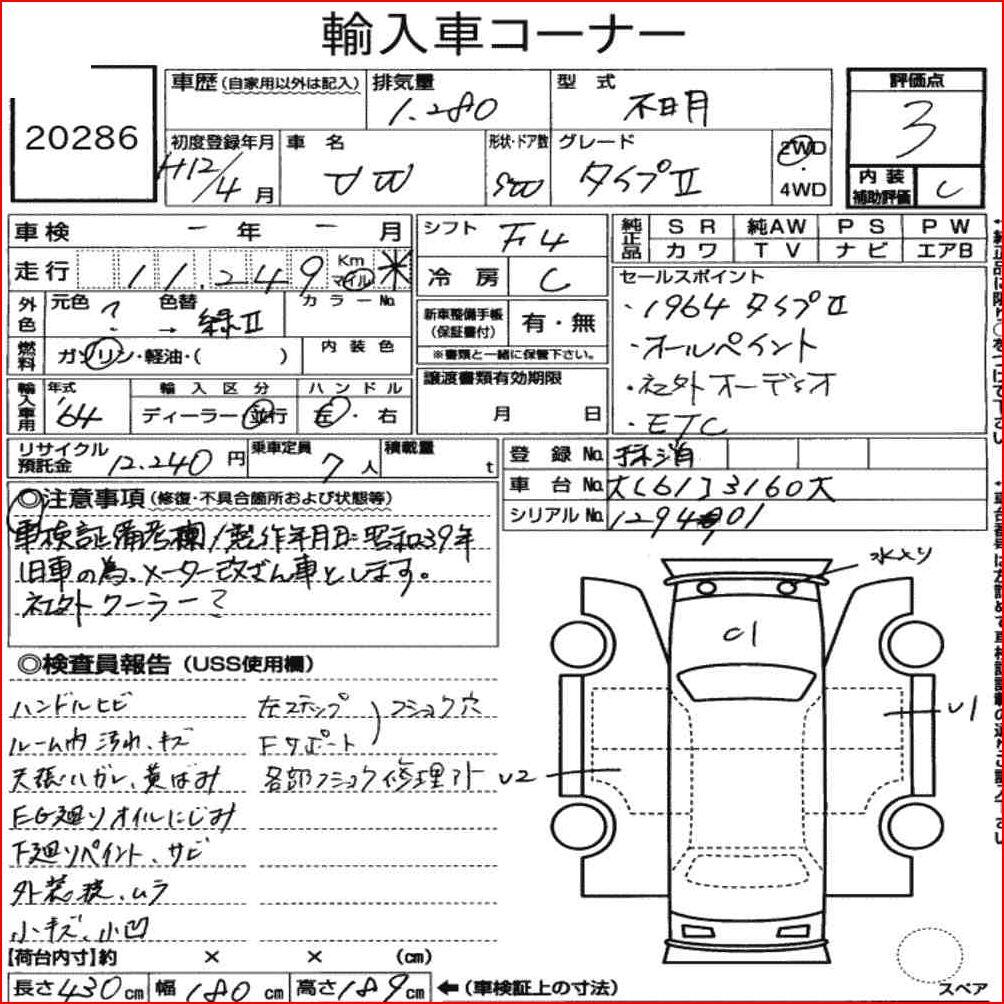 輸入車コーナー
20286
車歴 (自家用以外は記入)
排気量
1.280
型式
不明
評価点
3
初度登録年月
H12/4月
車名
VW
形状・ドア数
SW
グレード
タイプⅡ
2WD
・
4WD
内装
補助評価
C
車検 ー 年 ー 月
シフト
F4
純正品
SR 純AW PS PW
カワ TV ナビ エアB
走行
11,249
Km
マイル
冷房
C
セールスポイント
・1964 タイプⅡ
・オールペイント
・社外オーディオ
・ETC
外色
元色 ?
色替
→ 緑Ⅱ
カラーNo.
新車整備手帳
(保証書付)
有・無
※書類と一緒に保管下さい。
燃料
ガソリン・軽油・( )
内装色
譲渡書類有効期限
月 日
輸入車用
年式
'64
輸入区分
ディーラー・並行
ハンドル
左・右
リサイクル
預託金
12.240円
乗車定員
7人
積載量
t
登録No.
抹消
車台No.
大[61]3160大
シリアルNo.
1294901
◎注意事項 (修復・不具合箇所および状態等)
車検証備考欄/製作年月日:昭和39年
旧車の為、メーター改ざん車とします。
社外クーラー?
水入り
C1
U1
U2
◎検査員報告 (USS使用欄)
ハンドルヒビ
ルーム内汚れ、キズ
天張ハガレ、黄ばみ
EG廻りオイルにじみ
下廻りペイント、サビ
外装疲、ムラ
小キズ、小凹
左ステップ
Fサポート
フショク穴
各部フショク修理アト
【荷台内寸】約 × × (cm)
長さ430cm
幅180cm
高さ189cm
←(車検証上の寸法)
スペア